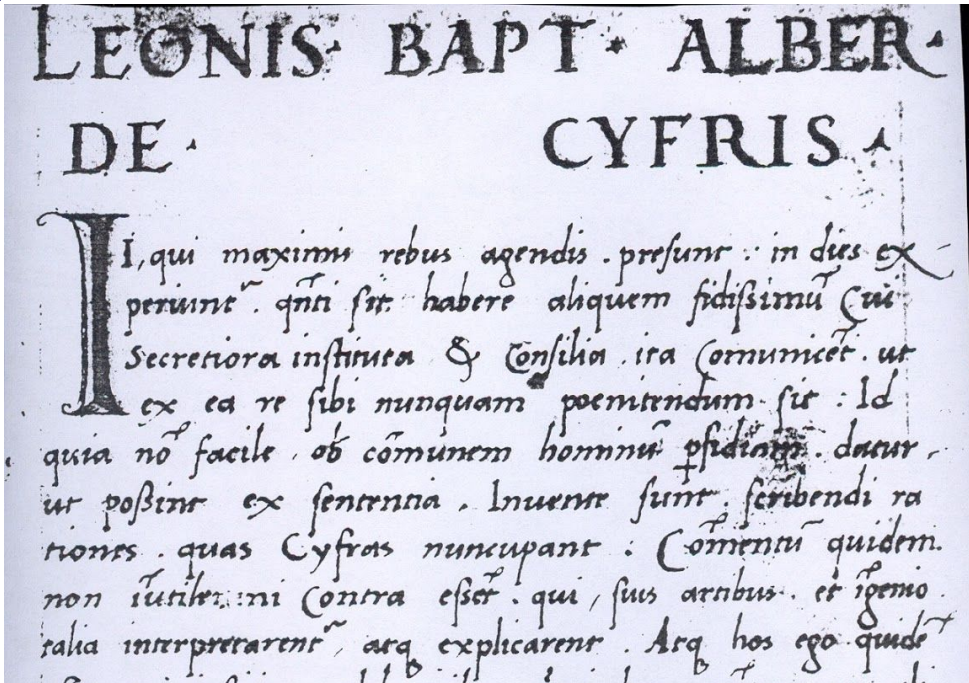 LEONIS· BAPT· ALBER·
DE· CYFRIS·
II, qui maximis rebus agendis . presunt : in dies ex
periunt᷑ . qñti sit habere aliquem fidissimū Cui
Secretiora instituta & Consilia . ita Comunicẽt . ut
ex ea re sibi nunquam poenitendum sit : Id
quia nõ facile . ob cõmunem hominũ ꝑfidiam . datur ,
ut possint ex sententia . Invente sunt . scribendi ra
tiones . quas Cyfras nuncupant : Cõmentũ quidem
non iũtile: ni Contra essẽt . qui , suis artibus . et ĩgenio
talia interpretarent᷑ , atq explicarent . Atq hos ego quidẽ